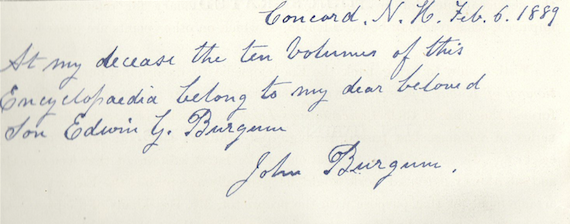 Concord, N. H. Feb. 6. 1889
At my decease the ten Volumes of this
Encyclopaedia belong to my dear beloved
Son Edwin G. Burgum
John Burgum.